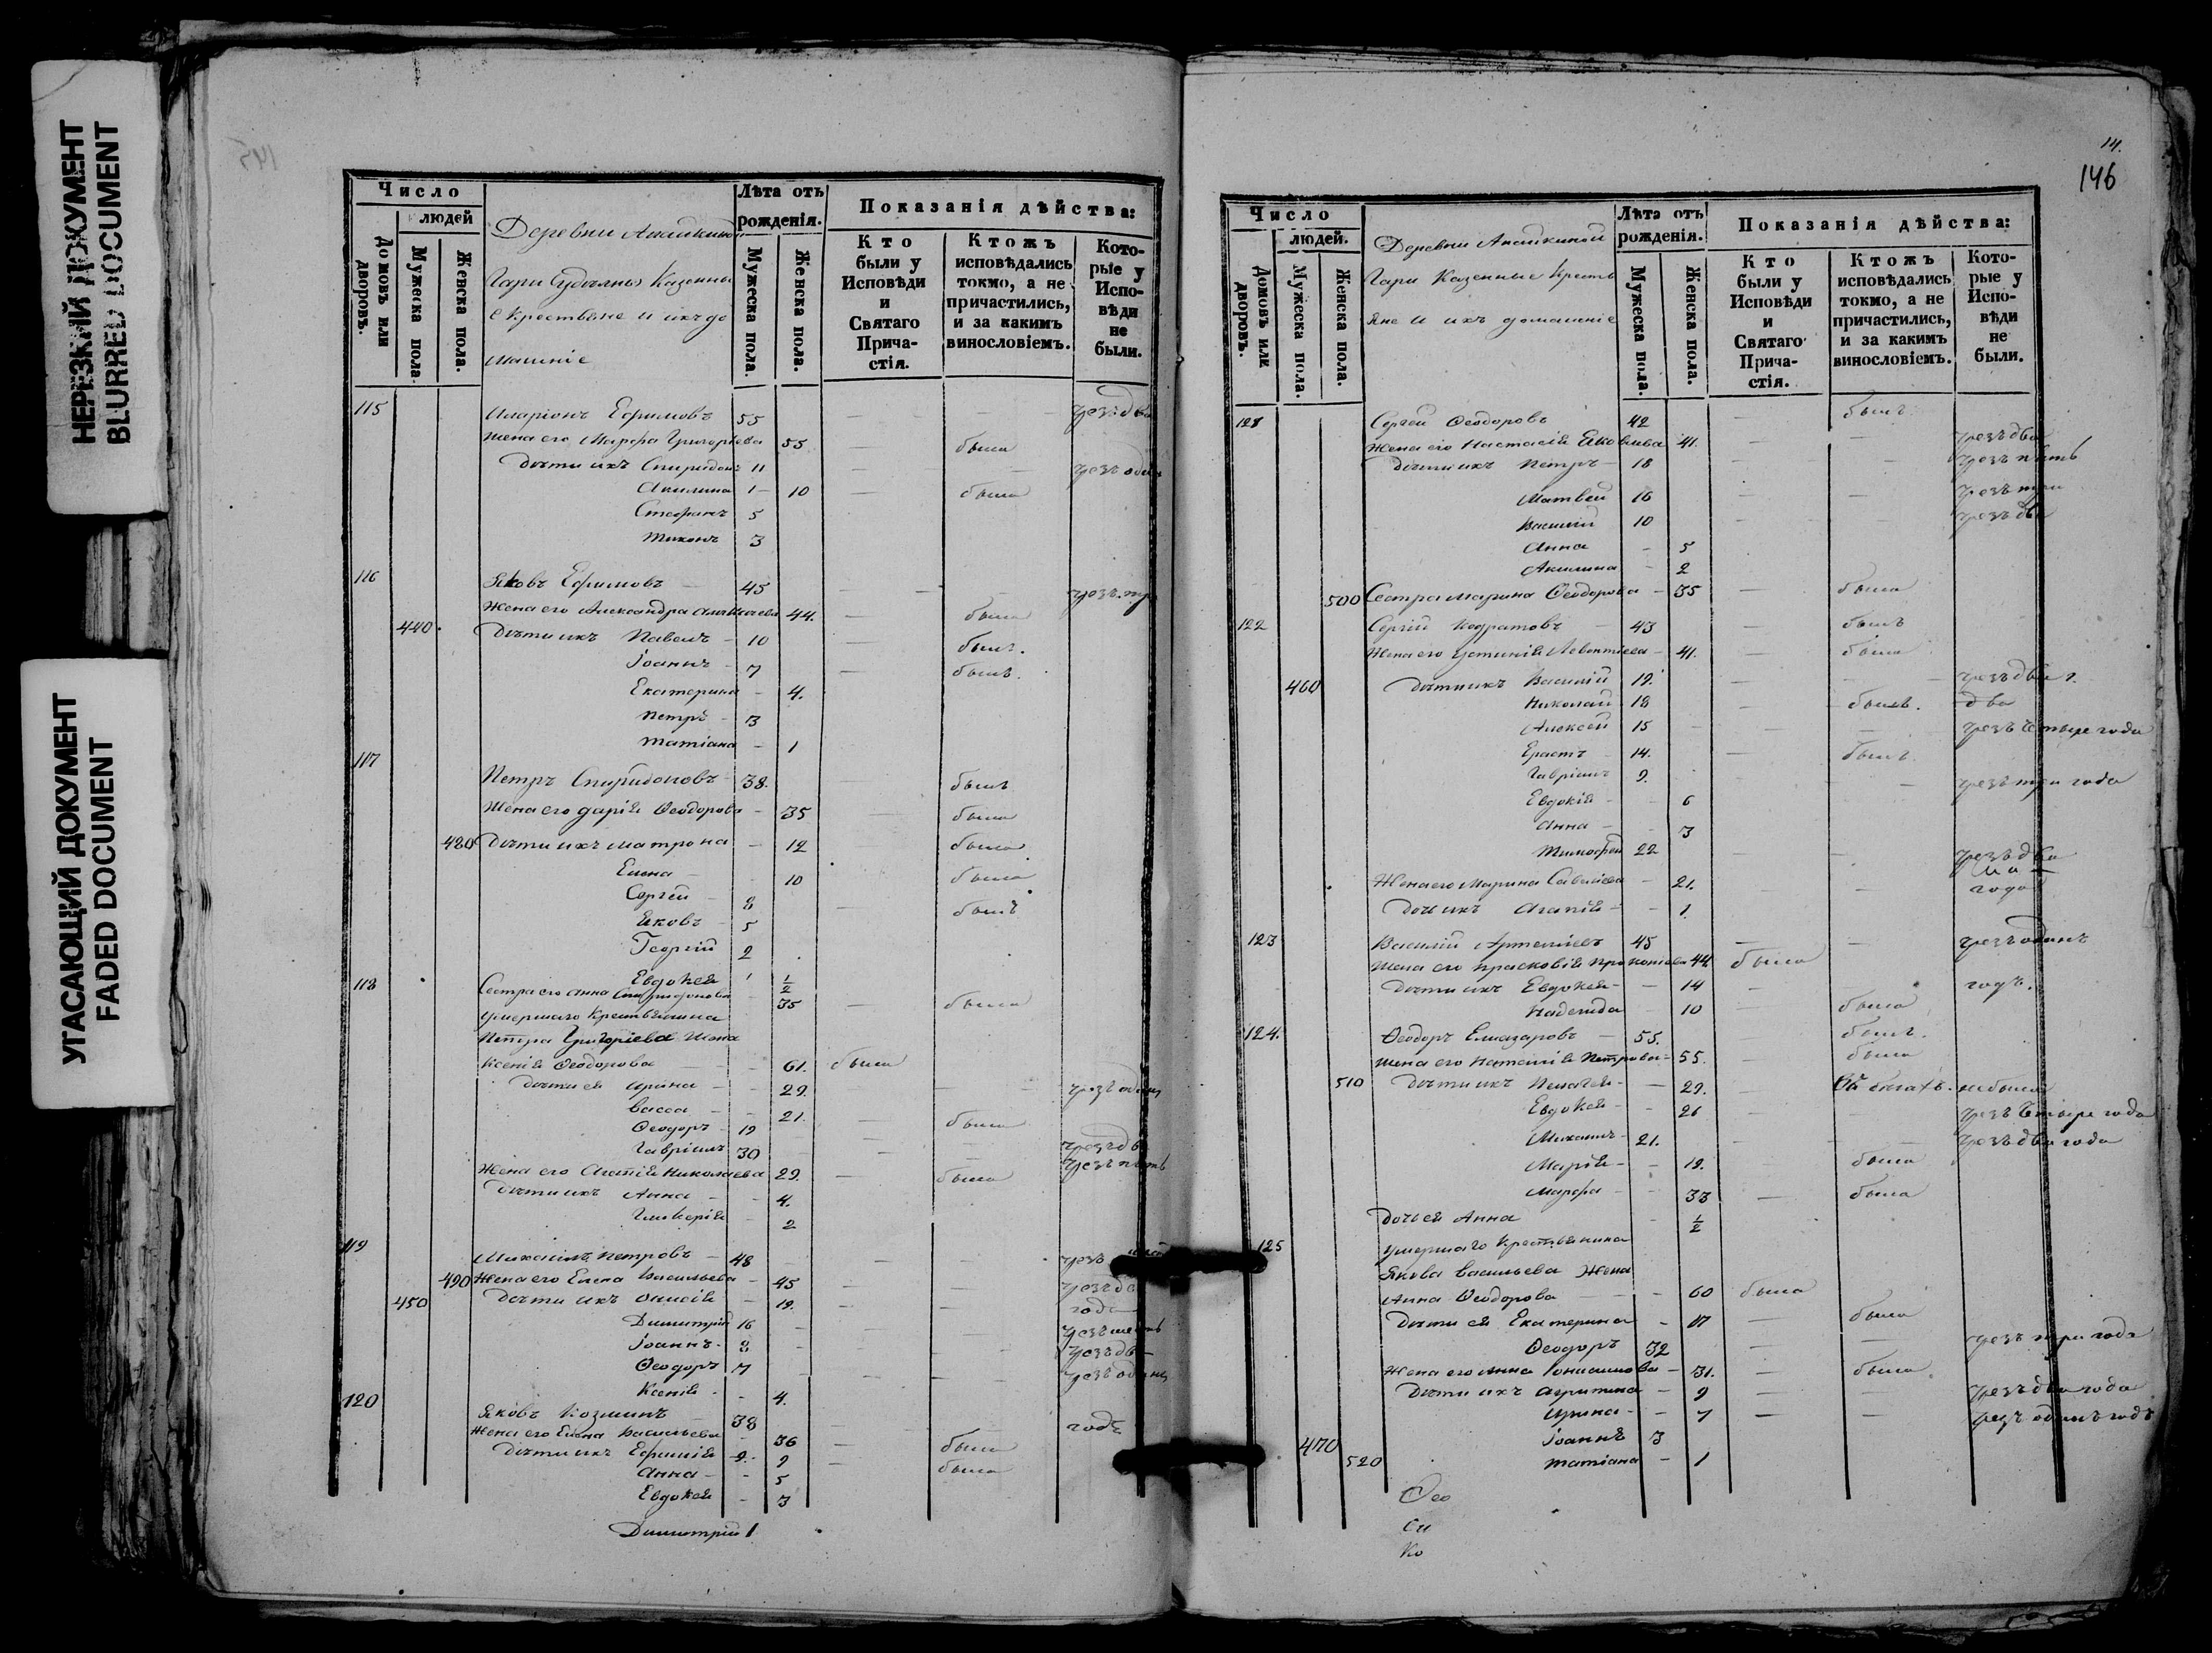 НЕРЕЗКИЙ ДОКУМЕНТ
BLURRED DOCUMENT
УГАСАЮЩИЙ ДОКУМЕНТ
FADED DOCUMENT
145
Число
людей
Домовъ или дворовъ.
Мужеска пола.
Женска пола.
Деревни
Гари Казенны
е Крестьяне и ихъ до
машніе
Лѣта отъ рожденія.
Мужеска пола.
Женска пола.
Показанія дѣйства:
Кто были у Исповѣди и Святаго Прича-стія.
Ктожъ исповѣдались токмо, а не причастились, и за какимъ винословіемъ.
Кото-рые у Испо-вѣди не были.
115 Иларіонъ Ефимовъ 55 — — чрезъ два
Жена его Марфа Григорьева 55 была
Дѣти ихъ Спиридонъ 11 — — чрезъ один
Акилина — 10 — была
Стефанъ 5
Тихонъ 3
116 Яковъ Ефимовъ — 45 — — чрезъ три
Жена его Александра 44. — была
440. Дѣти ихъ Павелъ — 10 — былъ.
Іоаннъ — 7 — былъ.
Екатерина — 4.
Петръ — 3
Татіана — 1
117
Петръ Спиридоновъ — 38. былъ
Жена его Дарія Ѳеодорова — 35 — была
480 Дѣти ихъ Матрона — 12 — была
Елена — 10 была
Сергей — 8 — былъ
Яковъ — 5
Георгій 2
Евдокея 1/2
118 Сестра его Анна Спиридонова — 35 — была
умершаго Крестьянина
Петра Григоріева Жена
Ксенія Ѳеодорова — — 61. была
Дѣти ея Ирина — — 29. — — чрезъ один
Васса — — 21. — была
Ѳеодоръ — 19 — — чрезъ два
Гавріилъ 30 — — чрезъ пять
Жена его Агапія Николаева 29. — была
Дѣти ихъ Анна — — 4.
Гликерія — 2
119 Михаилъ Петровъ — 48 — — чрезъ
490 Жена его Елена Васильева — 45 — — чрезъ два
450 Дѣти ихъ — 19. — — года
Димитрій 16 — — чрезъ шесть
Іоаннъ — 8 — — чрезъ два
Ѳеодоръ 7 — — чрезъ одинъ
Ксенія — — 4.
120 Яковъ Козминъ — 38 — годъ
Жена его Елена Васильева — 36 — была
Дѣти ихъ Ефимія 9 — была
Анна — — 5
Евдокея — 3
Димитрій 1
14.
146
Число
людей.
Домовъ или дворовъ.
Мужеска пола.
Женска пола.
Деревни
Гари Казенные Кресть
яне и ихъ домашніе
Лѣта отъ рожденія.
Мужеска пола.
Женска пола.
Показанія дѣйства:
Кто были у Исповѣди и Святаго Прича-стія.
Ктожъ исповѣдались токмо, а не причастились, и за какимъ винословіемъ.
Кото-рые у Испо-вѣди не были.
121 Сергей Ѳеодоровъ 42 — былъ
Жена его Настасія Яковлева 41. — — чрезъ два
Дѣти ихъ Петръ — 18 — — чрезъ пять
Матвей 16 — — чрезъ три
Василій 10 — — чрезъ два
Анна — 5
Акилина — 2
500 Сестра Марина Ѳеодорова — 35 — была
122 Сергій Кодратовъ — 43 — былъ
Жена его Устинія Левонтіева — 41. — была
460 Дѣти ихъ Василій 19. — — чрезъ два г.
Николай 18 — былъ. два
Алексей 15 — — чрезъ четыре года
Ерастъ 14. — былъ.
Гавріилъ 9. — чрезъ три года
Евдокія — — 6
Анна — — 3
Тимофей 22 — — чрезъ два
Жена его Марина Савельева — 21. — — года
Дочь ихъ Агапія — — 1.
123 Василій Артеміевъ 45 — — чрезъ одинъ
Жена его Прасковія Прокопіева 44 была
Дѣти ихъ Евдокея — — 14 — годъ.
Надежда — 10 — была
124. Ѳеодоръ Елиазаровъ — 55. былъ.
Жена его Наталія Петрова — 55. — была
510 Дѣти ихъ Пелагея — — 29. — не была
Евдокея — — 26 — — чрезъ четыре года
Михаилъ — 21. — — чрезъ два года
Марія — — 19. — была
Марфа — — 33 — была
Дочь ея Анна — 1/2
125 умершаго Крестьянина
Якова Васильева Жена
Анна Ѳеодорова — — 60 была
Дѣти ея Екатерина — 17 — была
Ѳеодоръ 32 — — чрезъ три года
Жена его Анна — 31. — была
Дѣти ихъ Агрипина — 9 — чрезъ два года
Ирина — — 7 — — чрезъ одинъ годъ
470 Іоаннъ 3
520 Татіана — 1
Ѳео
си
ко